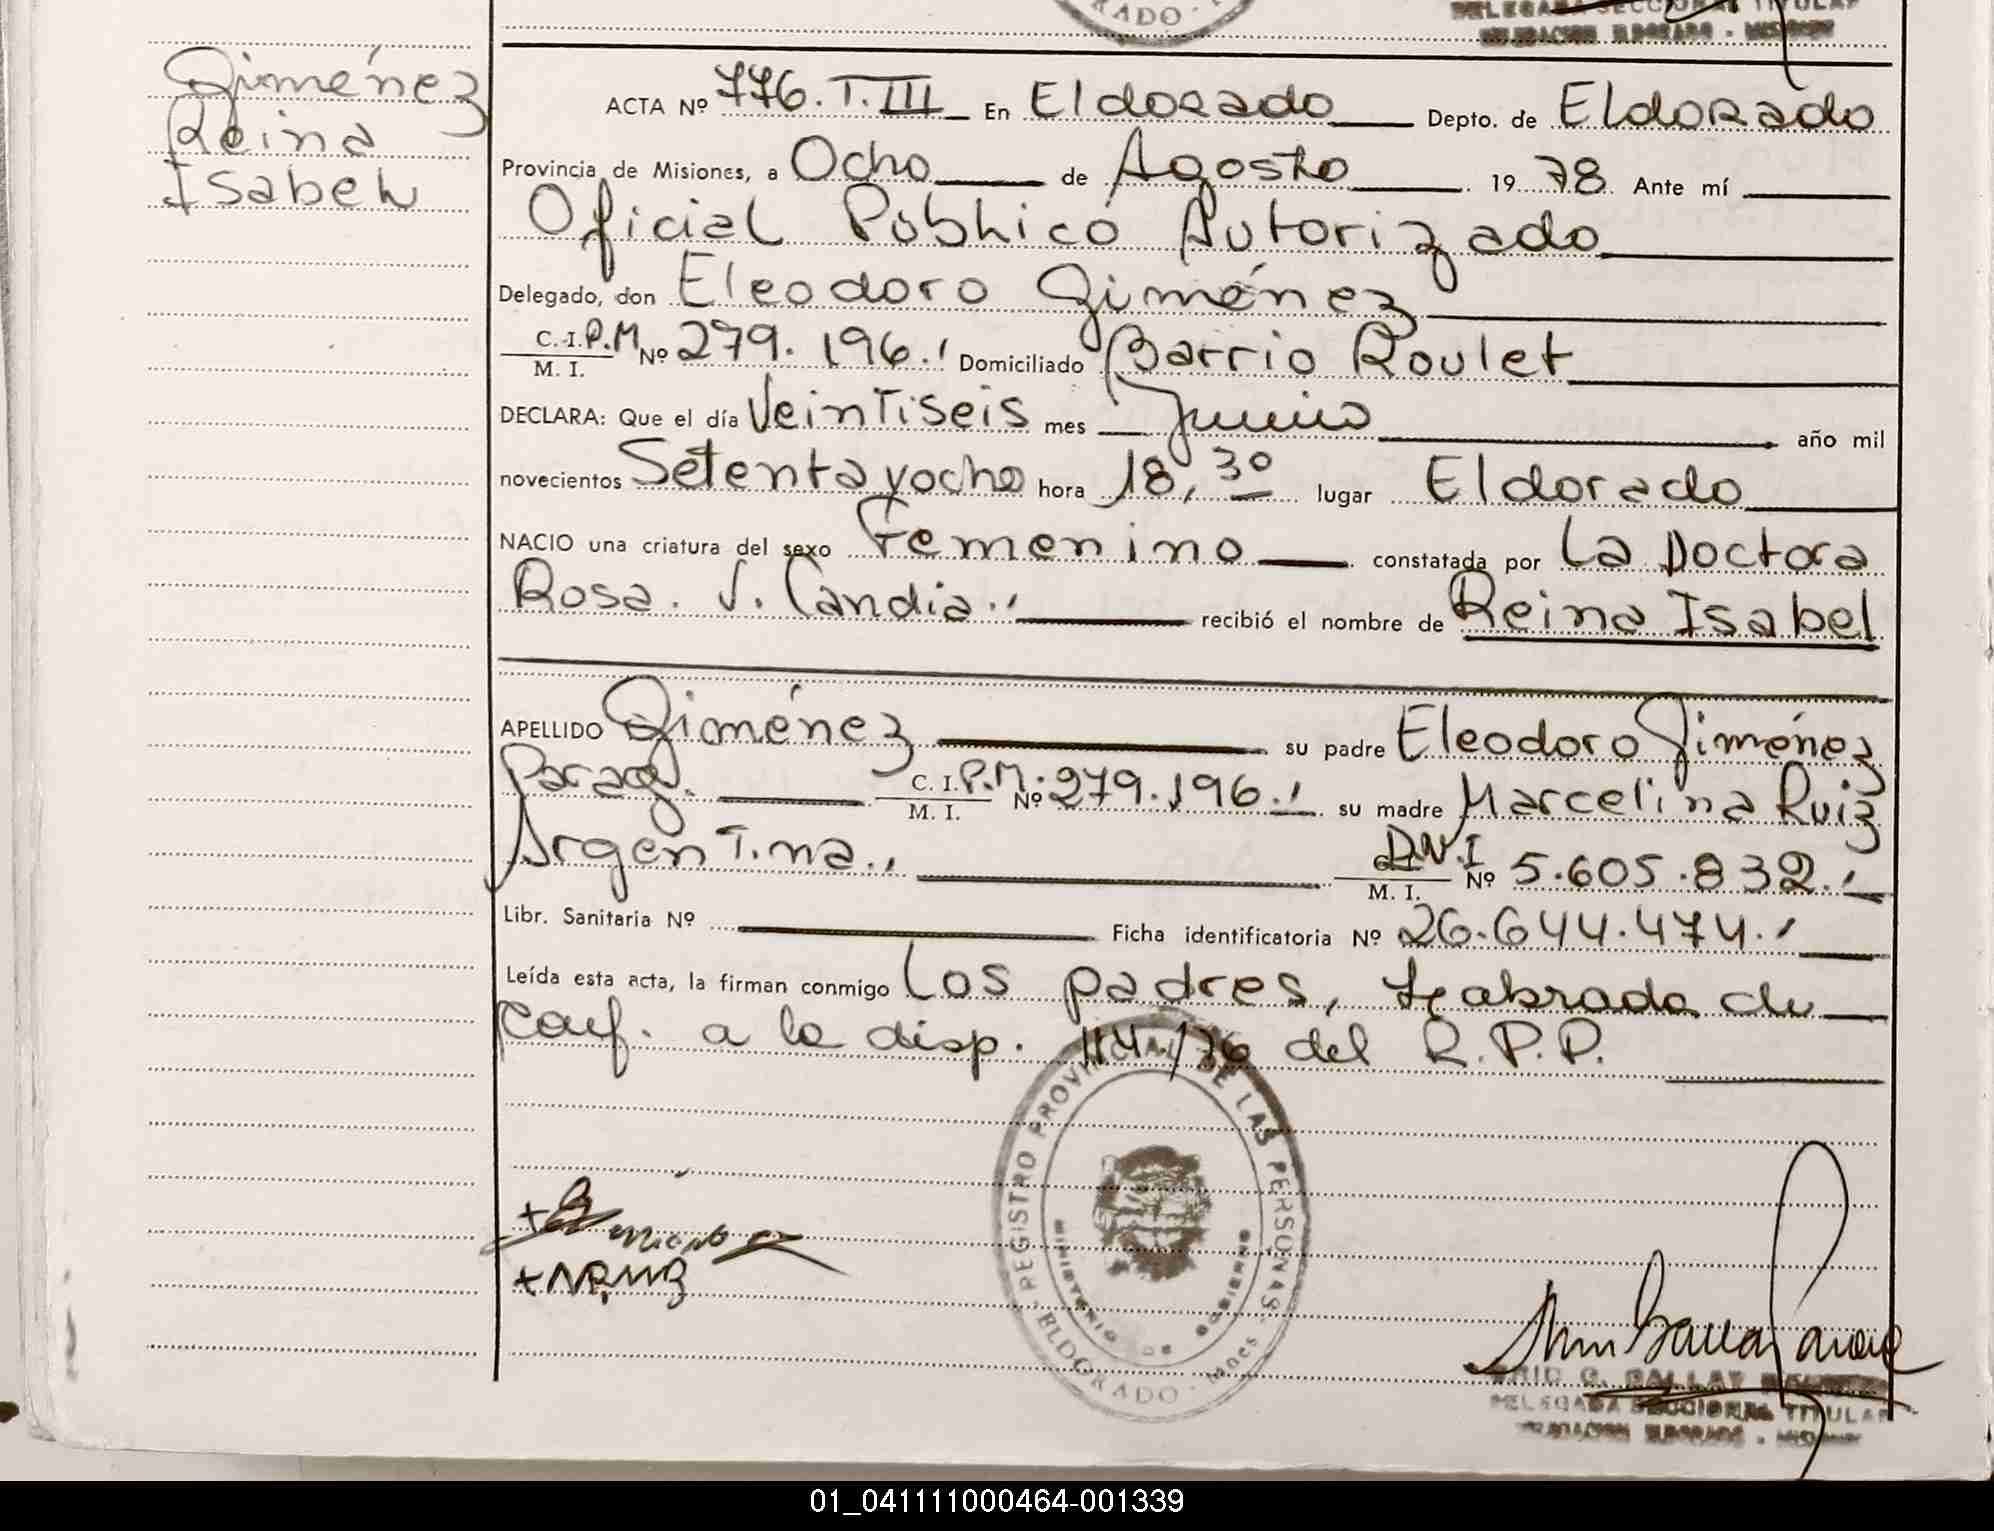 Giménez
Reina
Isabel
ACTA Nº 776. T. III En Eldorado Depto. de Eldorado
Provincia de Misiones, a Ocho de Agosto 1978 Ante mí
Oficial Público Autorizado
Delegado, don Eleodoro Giménez
C. I. P. M Nº 279.196.' Domiciliado Barrio Roulet
M. I.
DECLARA: Que el día Veintiseis mes Junio año mil
novecientos Setenta y ocho hora 18,30 lugar Eldorado
NACIO una criatura del sexo Femenino constatada por La Doctora
Rosa. V. Candia.' recibió el nombre de Reina Isabel
APELLIDO Giménez su padre Eleodoro Giménez
Parag. C. I. P.M. Nº 279.196.' su madre Marcelina Ruiz
M. I.
Argentina., D.N.I Nº 5.605.832.'
M. I.
Libr. Sanitaria Nº Ficha identificatoria Nº 26.644.474.'
Leída esta acta, la firman conmigo Los padres, labrada de
conf. a la disp. 114/76 del R.P.P.
REGISTRO PROVINCIAL DE LAS PERSONAS
MINISTERIO DE GOBIERNO
ELDORADO - Mnes
DELEGADA SECCIONAL TITULAR
DELEGACION ELDORADO - MISIONES
01_041111000464-001339